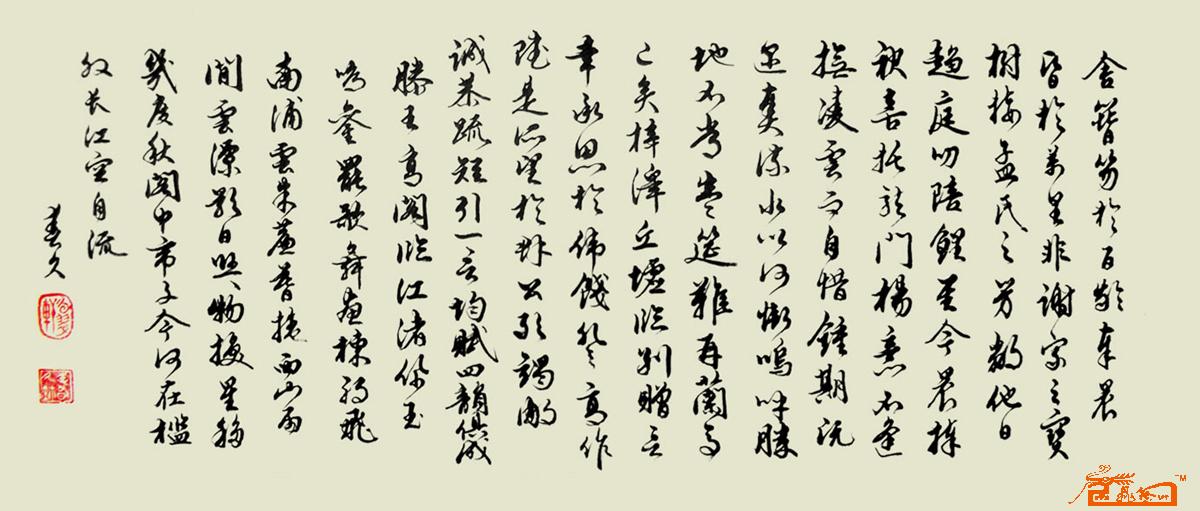 舍簪笏於百齡奉晨
昏於萬里非謝家之寶
樹接孟氏之芳鄰他日
趨庭叨陪鯉對今晨捧
袂喜托龍門楊意不逢
撫凌雲而自惜鍾期既
遇奏流水以何慚嗚呼勝
地不常盛筵難再蘭亭
已矣梓澤丘墟臨別贈言
幸承恩於偉餞登高作
賦是所望於群公敢竭鄙
誠恭疏短引一言均賦四韻俱成
滕王高閣臨江渚佩玉
鳴鑾罷歌舞畫棟朝飛
南浦雲朱簾暮捲西山雨
閒雲潭影日悠悠物換星移
幾度秋閣中帝子今何在檻
外长江空自流